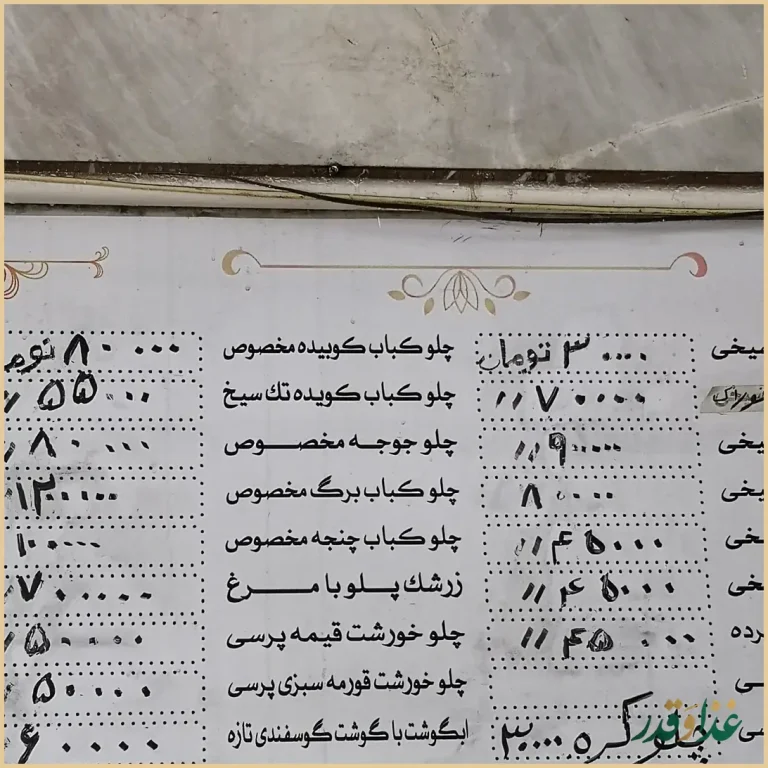 ۳۰۰۰۰ تومان چلو کباب کوبیده مخصوص ۸۰۰۰۰
۷۰۰۰۰ // چلو کباب کوبیده تك سیخ ۵۵۰۰۰ //
۹۰۰۰۰ // چلو جوجه مخصوص ۸۰۰۰۰ //
۸۰۰۰۰ چلو کباب برگ مخصوص ۱۲۰۰۰۰
۴۵۰۰۰ // چلو کباب چنجه مخصوص ۱۰۰۰۰۰
۴۵۰۰۰ // زرشك پلو با مرغ ۷۰۰۰۰ //
۴۵۰۰۰ // چلو خورشت قیمه پرسی ۵۰۰۰۰ //
چلو خورشت قورمه سبزی پرسی ۵۰۰۰۰
چلو کره ۳۰۰۰۰ ابگوشت با گوشت گوسفندی تازه ۶۰۰۰۰
غذا و قدر